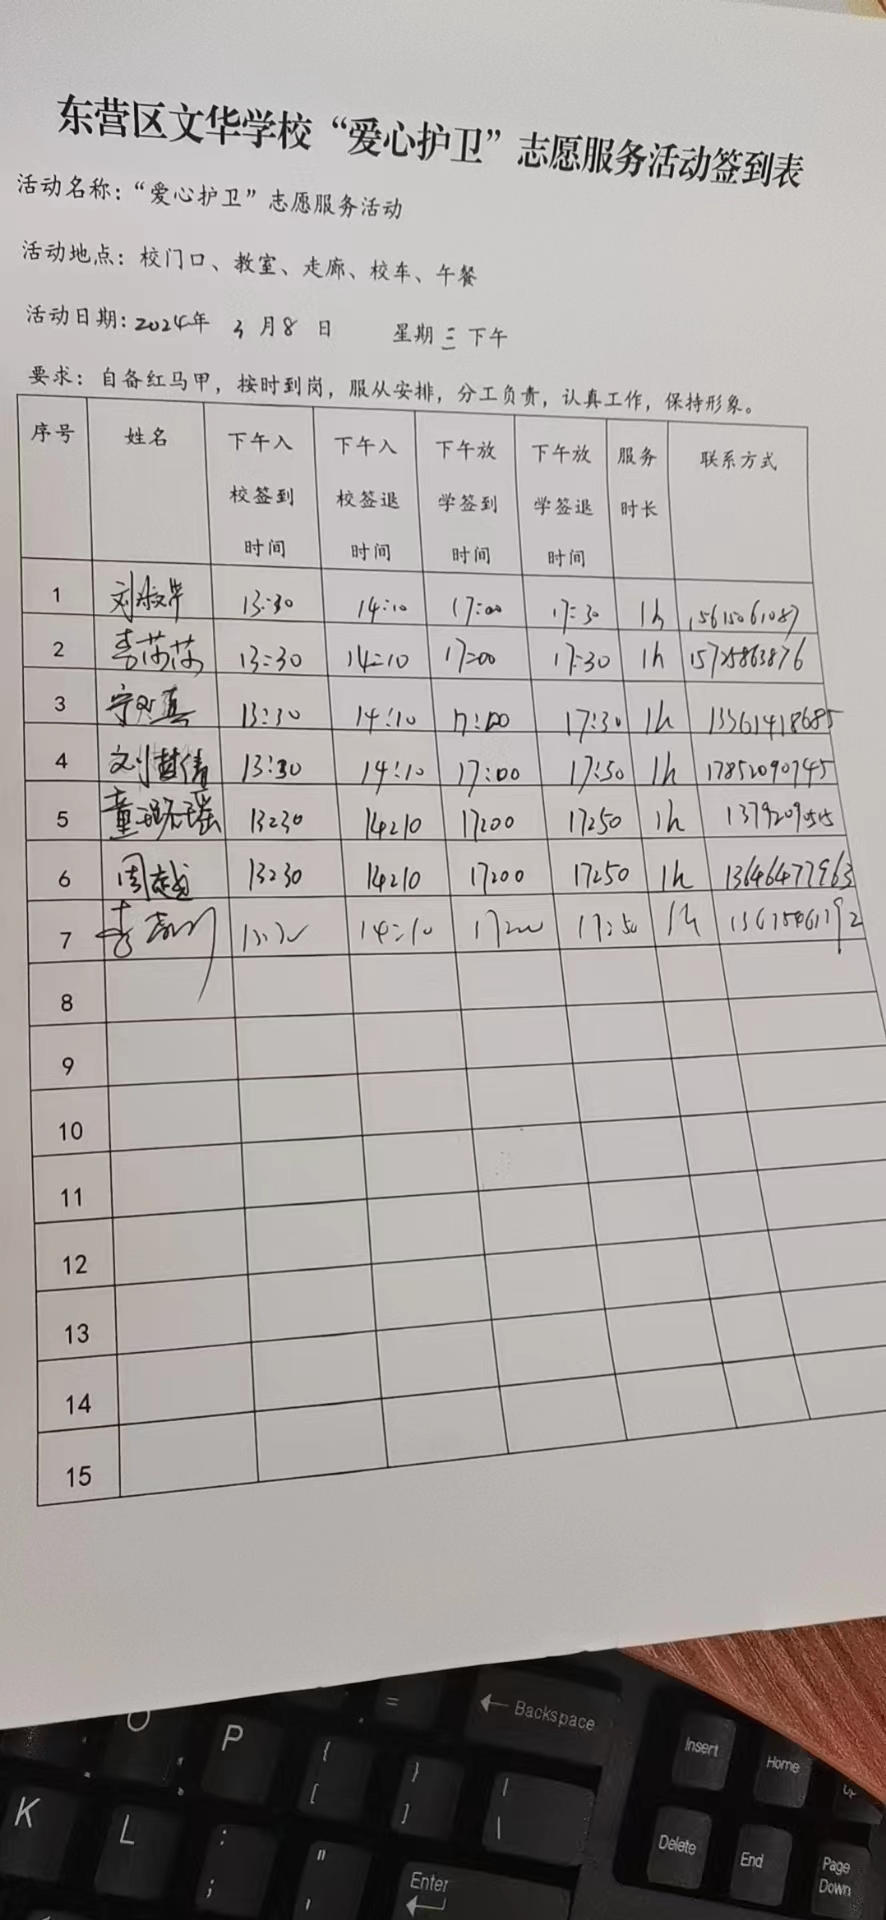 东营区文华学校“爱心护卫”志愿服务活动签到表
活动名称：“爱心护卫”志愿服务活动
活动地点：校门口、教室、走廊、校车、午餐
活动日期：2024年 3 月 8 日 星期三下午
要求：自备红马甲，按时到岗，服从安排，分工负责，认真工作，保持形象。
序号 姓名 下午入校签到时间 下午入校签退时间 下午放学签到时间 下午放学签退时间 服务时长 联系方式
1 刘淑芹 13:30 14:10 17:00 17:30 1h 15615061087
2 李莎莎 13:30 14:10 17:00 17:30 1h 15725863876
3 13:30 14:10 17:00 17:30 1h 13361418685
4 刘梦倩 13:30 14:10 17:00 17:30 1h 17852090745
5 13:30 14:10 17:00 17:50 1h
6 周越 13:30 14:10 17:00 17:50 1h 13646477963
7 14:10 17:00 17:50 1h
8
9
10
11
12
13
14
15
O P = Backspace Insert Home
K L { [ } ] | \ Delete End Page Down
: ; " ' Enter